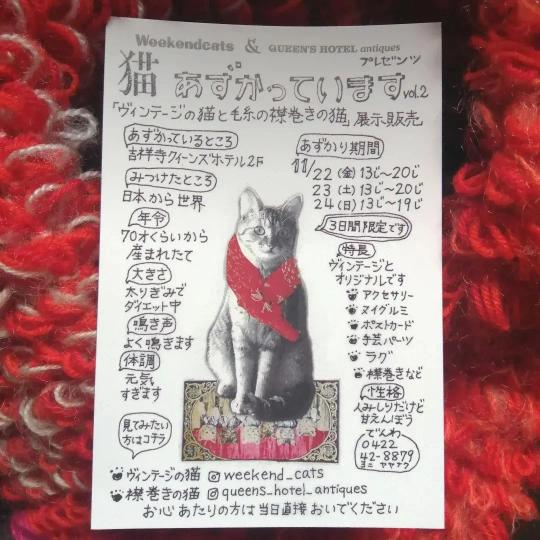 Weekendcats & QUEEN'S HOTEL antiques
プレゼンツ
猫 あずかっています vol.2
「ヴィンテージの猫と毛糸の襟巻きの猫」展示販売
あずかっているところ
吉祥寺クイーンズホテル2F
みつけたところ
日本から世界
年令
70才くらいから
産まれたて
大きさ
太りぎみで
ダイエット中
鳴き声
よく鳴ぎます
体調
元気
すぎます
見てみたい
方はコチラ
あずかり期間
11/22(金)13じ〜20じ
23(土)13じ〜20じ
24(日)13じ〜19じ
3日間限定です
特長
ヴィンテージと
オリジナルです
アクセサリー
ヌイグルミ
ポストカード
手芸パーツ
ラグ
襟巻きなど
性格
人みしりだけど
甘えんぼう
でんわ
0422
42-8879
ヨニ ヤヤナク
ヴィンテージの猫 weekend_cats
襟巻きの猫 queens_hotel_antiques
お心あたりの方は当日直接おいでください